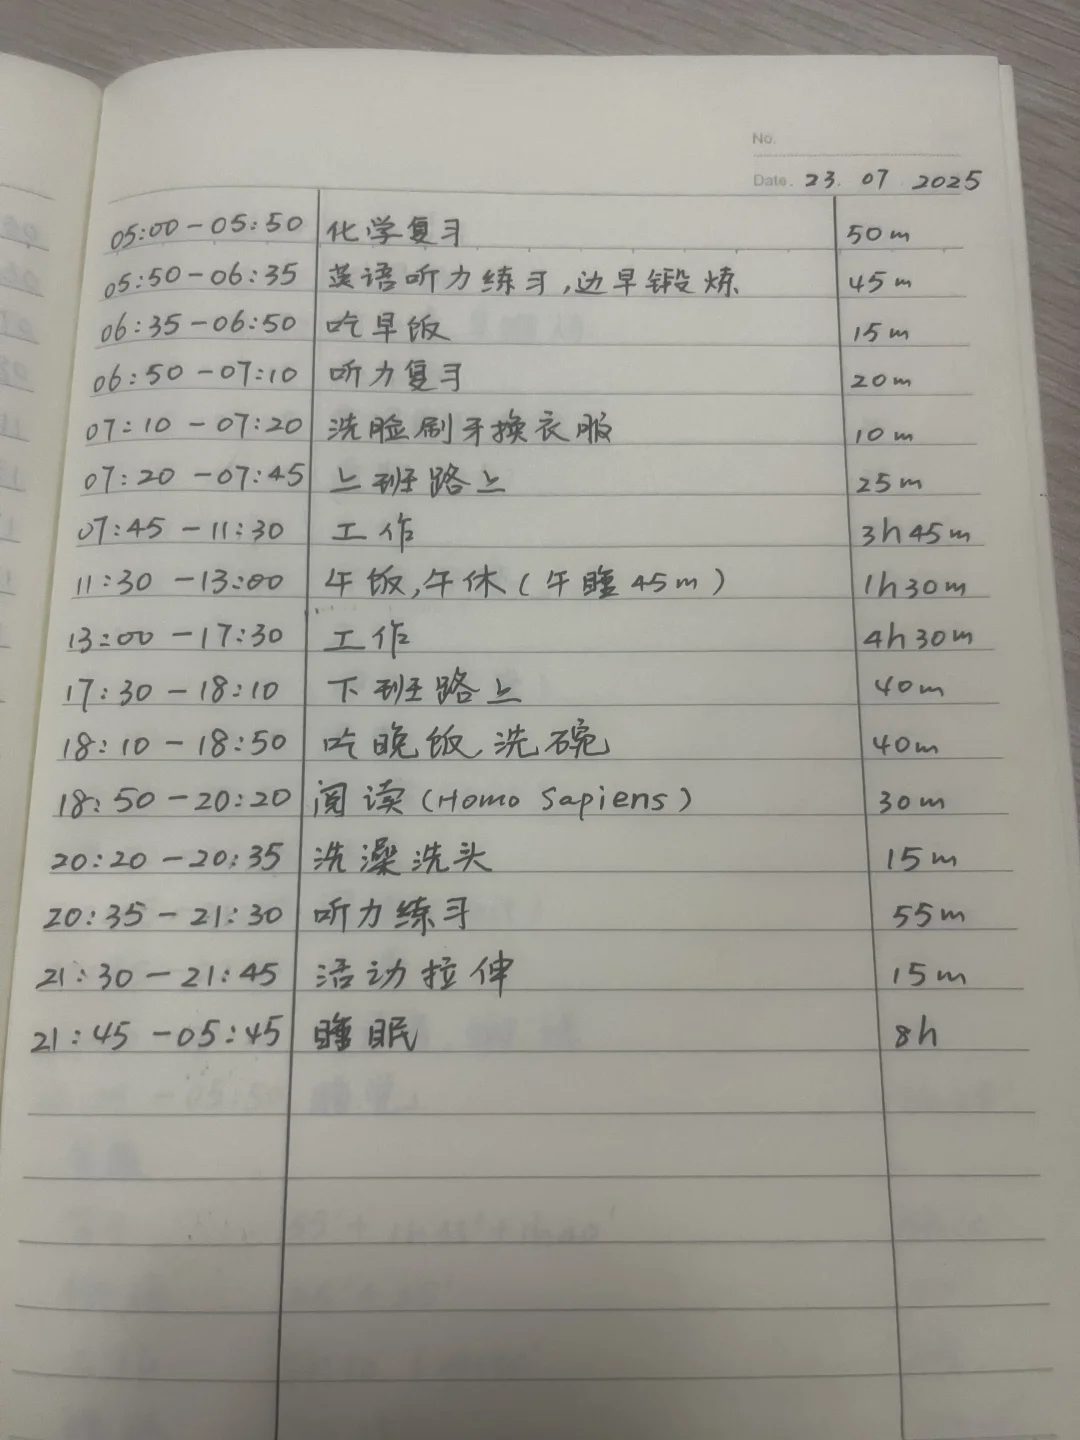 No.
Date. 23. 07. 2025
05:00 - 05:50 化学复习 50m
05:50 - 06:35 英语听力练习,边早锻炼 45m
06:35 - 06:50 吃早饭 15m
06:50 - 07:10 听力复习 20m
07:10 - 07:20 洗脸刷牙换衣服 10m
07:20 - 07:45 上班路上 25m
07:45 - 11:30 工作 3h45m
11:30 - 13:00 午饭,午休(午睡45m) 1h30m
13:00 - 17:30 工作 4h30m
17:30 - 18:10 下班路上 40m
18:10 - 18:50 吃晚饭洗碗 40m
18:50 - 20:20 阅读(Homo Sapiens) 30m
20:20 - 20:35 洗澡洗头 15m
20:35 - 21:30 听力练习 55m
21:30 - 21:45 活动拉伸 15m
21:45 - 05:45 睡眠 8h